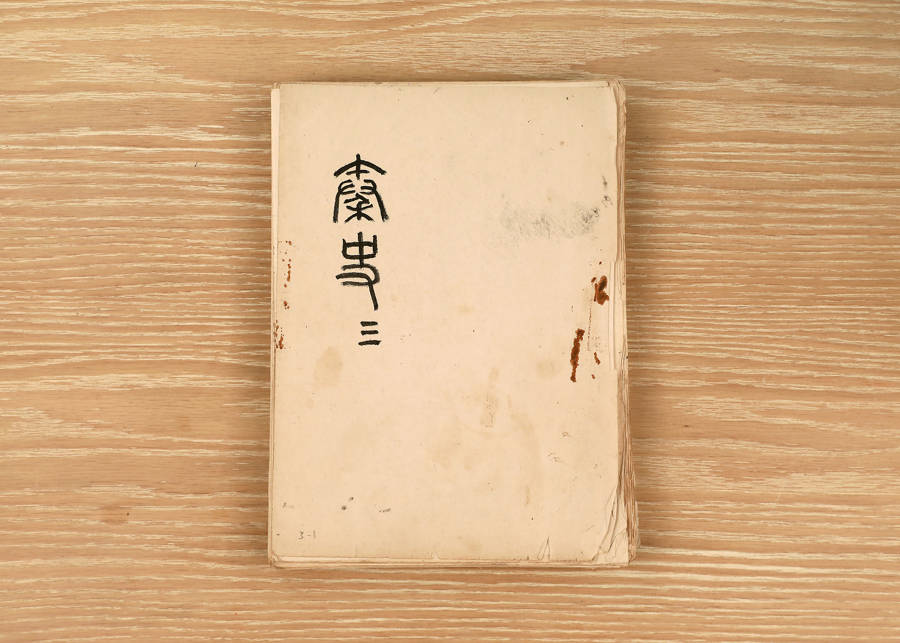 秦史
三
3-1